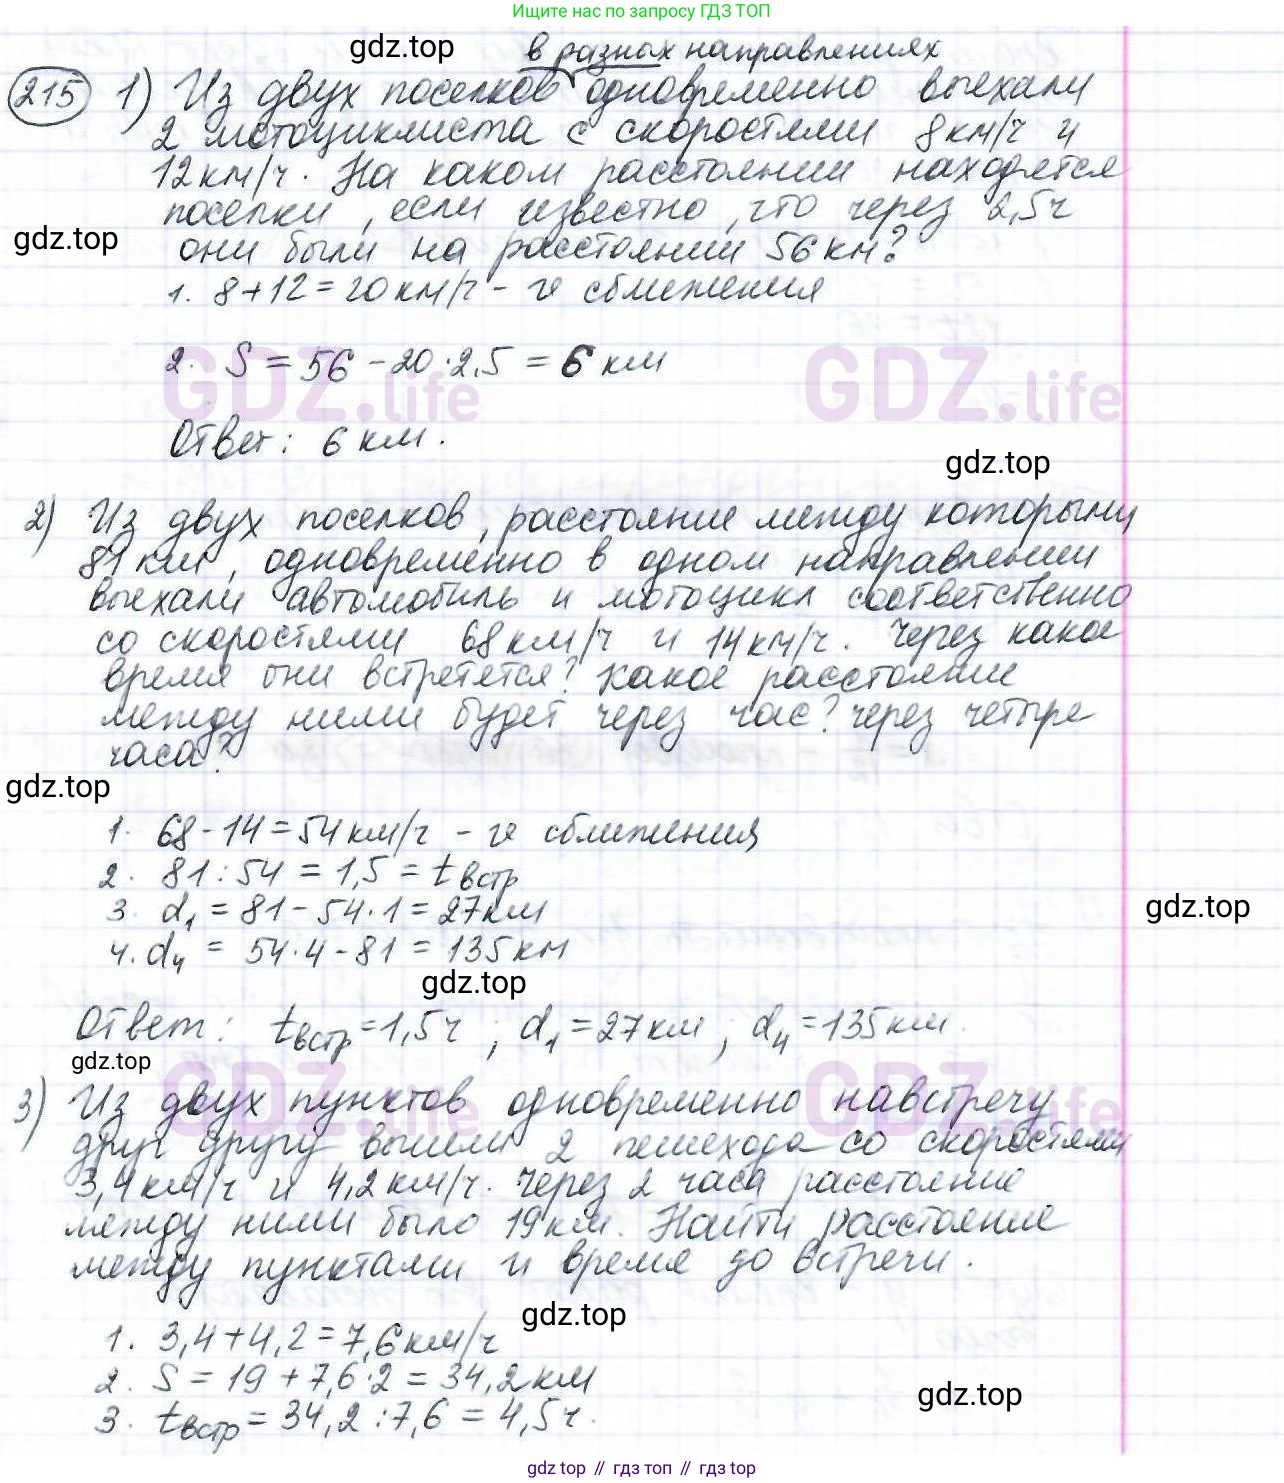 Ищите нас по запросу ГДЗ ТОП
gdz.top
в разных направлениях
215 1) Из двух поселков одновременно выехали
2 мотоциклиста с скоростями 8 км/ч и
12 км/ч. На каком расстоянии находятся
поселки, если известно, что через 2,5 ч
gdz.top
они были на расстоянии 56 км?
1. 8+12=20 км/ч - v сближения
2. S = 56 - 20·2,5 = 6 км
GDZ.life GDZ.life
Ответ: 6 км.
gdz.top
2) Из двух поселков, расстояние между которыми
81 км, одновременно в одном направлении
выехали автомобиль и мотоцикл соответственно
со скоростями 68 км/ч и 14 км/ч. Через какое
время они встретятся? Какое расстояние
между ними будет через час? через четыре
часа?
gdz.top
1. 68-14=54 км/ч - v сближения
2. 81:54 = 1,5 = t встр
3. d₁ = 81-54·1=27 км
gdz.top
4. d₄ = 54·4-81 = 135 км
gdz.top
Ответ: t встр=1,5 ч; d₁=27 км; d₄=135 км.
gdz.top
GDZ.life GDZ.life
3) Из двух пунктов одновременно навстречу
друг другу вышли 2 пешехода со скоростями
3,4 км/ч и 4,2 км/ч. Через 2 часа расстояние
между ними было 19 км. Найти расстояние
между пунктами и время до встречи.
gdz.top
1. 3,4+4,2=7,6 км/ч
2. S = 19 + 7,6·2 = 34,2 км
gdz.top
3. t встр = 34,2 : 7,6 = 4,5 ч.
gdz top // гдз топ // гдз top